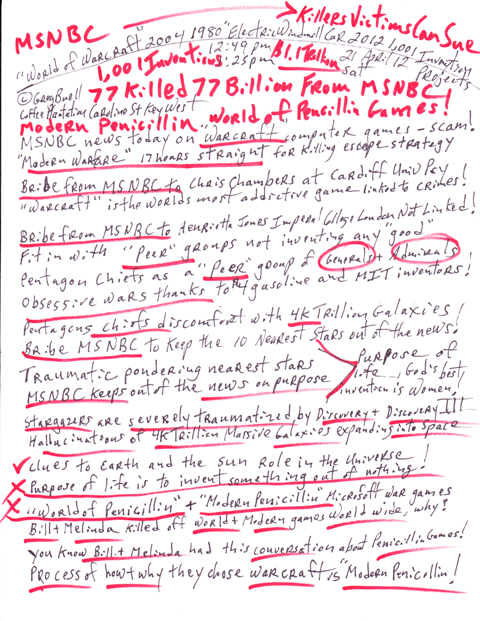 MSNBC → Killers Victims Can Sue
"World of Warcraft" 2004 1980 "Electric Windmill Car 2012 1,001 Invention
1,001 Inventions 12:49 pm $1.1 Trillion 21 April 12 Projects
:25pm Sat
77 Killed 77 Billion From MSNBC
© Greg Buell
Coffee Plantation Caroline St Key West
Modern Penicillin World of Pencillin Games!
MSNBC news today on "Warcraft computer games - scam!
"Modern Warfare" 17 hours straight for killing escape strategy
Bribe from MSNBC to Chris Chambers at Cardiff Univ Pay
"Warcraft" is the worlds most addictive game linked to crimes!
Bribe from MSNBC to Henrietta Jones Imperal College London Not Linked!
Fit in with "Peer" groups not inventing any "good"
Pentagon Chiefs as a "Peer" group of Generals + Admirals
Obsessive wars thanks to $4 gasoline and MIT inventors!
Pentagons chiefs discomfort with 4K Trillion Galaxies!
Bribe MSNBC to keep the 10 Nearest Stars out of the news!
Traumatic pondering nearest stars
MSNBC keeps out of the news on purpose
Purpose of
life, God's best
invention is Women!
Stargazers are severely traumatized by Discovery + Discovery III
Hallucinations of 4K Trillion Massive Galaxies expanding into space
✓ Clues to Earth and the Sun Role in the Universe!
X Purpose of life is to invent something out of nothing!
X "World of Penicillin" + "Modern Penicillin Microsoft war games
Bill + Melinda killed off World + Modern games world wide, why!
You know Bill + Melinda had this conversation about Penicillin Games!
Process of how + why they chose Warcraft is "Modern Penicillin!